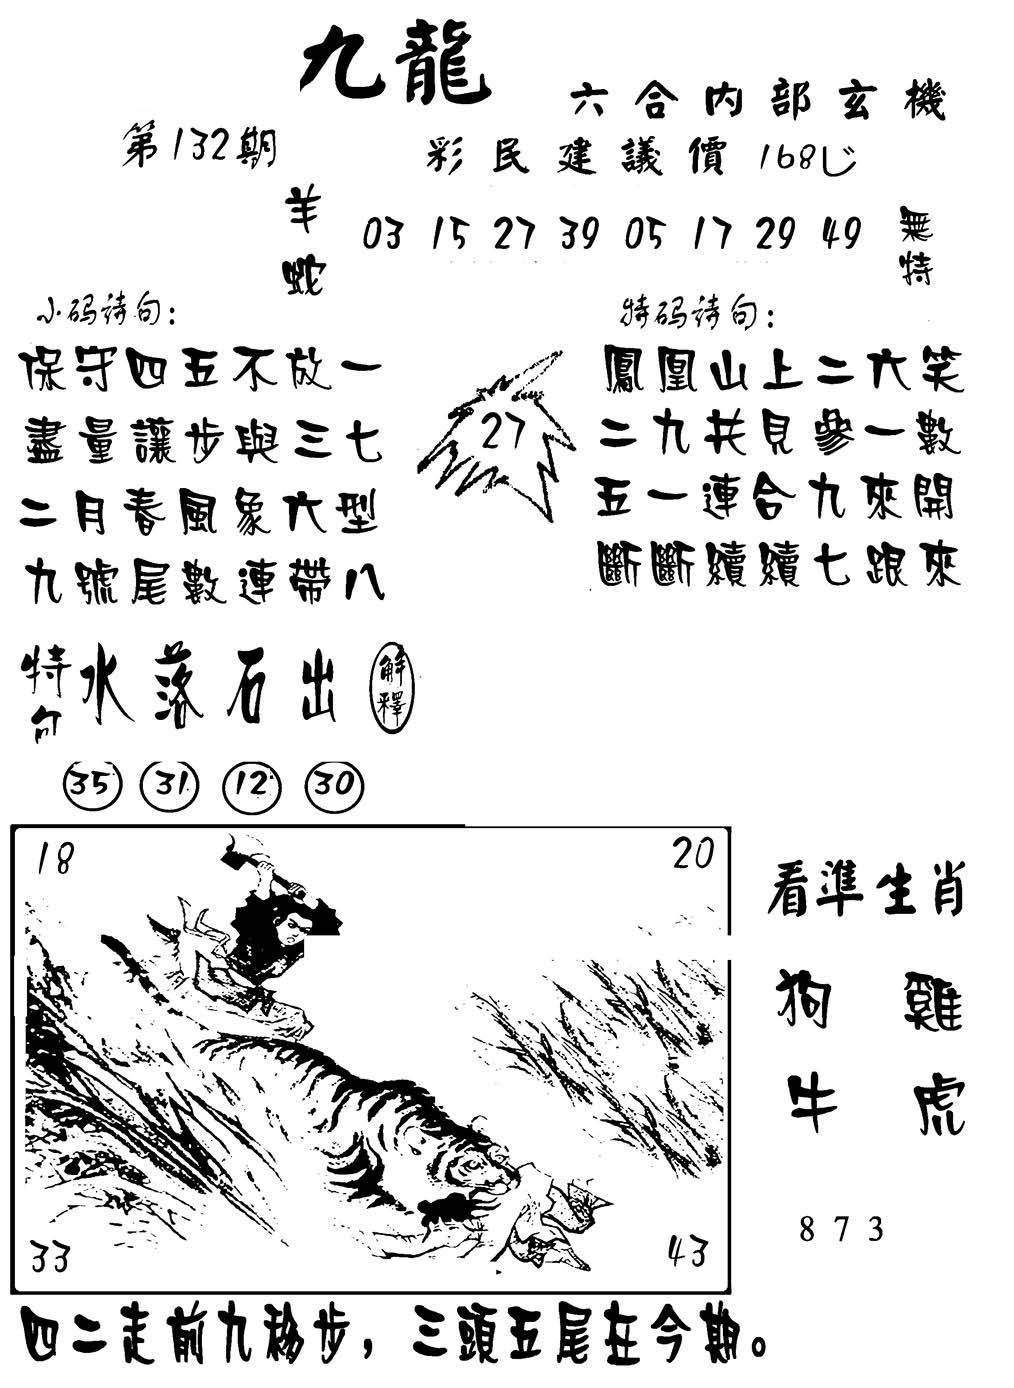 九龍
六合内部玄機
第132期
彩民建議價 168
羊
蛇
03 15 27 39 05 17 29 49
無特
小码诗句：
保守四五不放一
盡量讓步與三七
二月春風象六型
九號尾數連帶八
27
特码诗句：
鳳凰山上二六笑
二九共見參一數
五一連合九來開
斷斷續續七跟來
特句
水落石出
解釋
35 31 12 30
18
20
33
43
看準生肖
狗 雞
牛 虎
873
四二走前九移步，三頭五尾在今期。